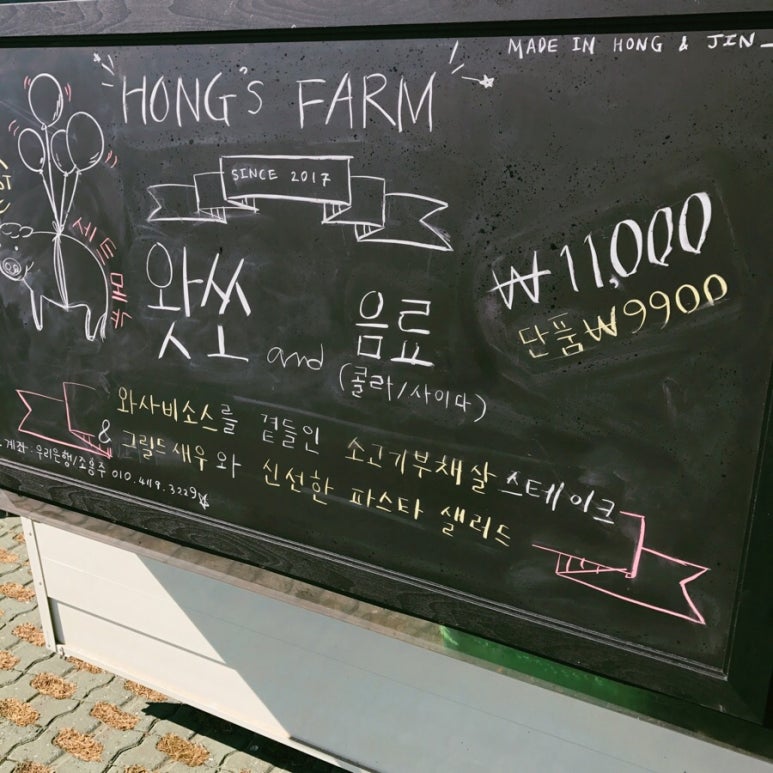 MADE IN HONG & JIN
HONG'S FARM
SINCE 2017
세트메뉴
₩11,000
단품₩9900
왓쏘 and 음료
(콜라/사이다)
와사비소스를 곁들인 소고기부채살 스테이크
& 그릴드새우와 신선한 파스타 샐러드
계좌 : 우리은행/조홍주 010.4119.3229